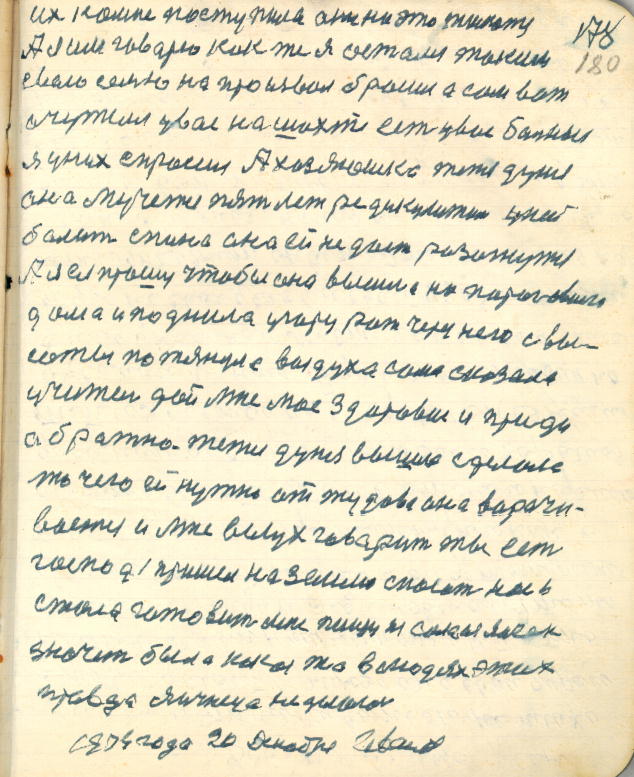 их ко мне поступила она на это
А я им говорю как же я остался таким
свою семью на произвол бросил а сам вот
очутился у вас на шахте ест у вас больныи
я у них спросил А хозяюшка тетя дуня
она мучется пят лет редикулитам у ней
болит спина она ей не дает разогнутся
А я ея прошу чтобы она вышла на порог своего
дома и поднила у гору рот через него с вы-
соты потянула воздуха сама сказала
учител дай мне мое здоровие и приди
обратно. тетя дуня вышла сделала
то чего ей нужно от тудова она ворачи-
вается и мне вслух говарит ты ест
господ! пришел на землю спасат нас
стала готовит мне пищу
значит была какая то в людях этих
правда я ничего не делал
1974 года 20 декабря Иванов
178
180